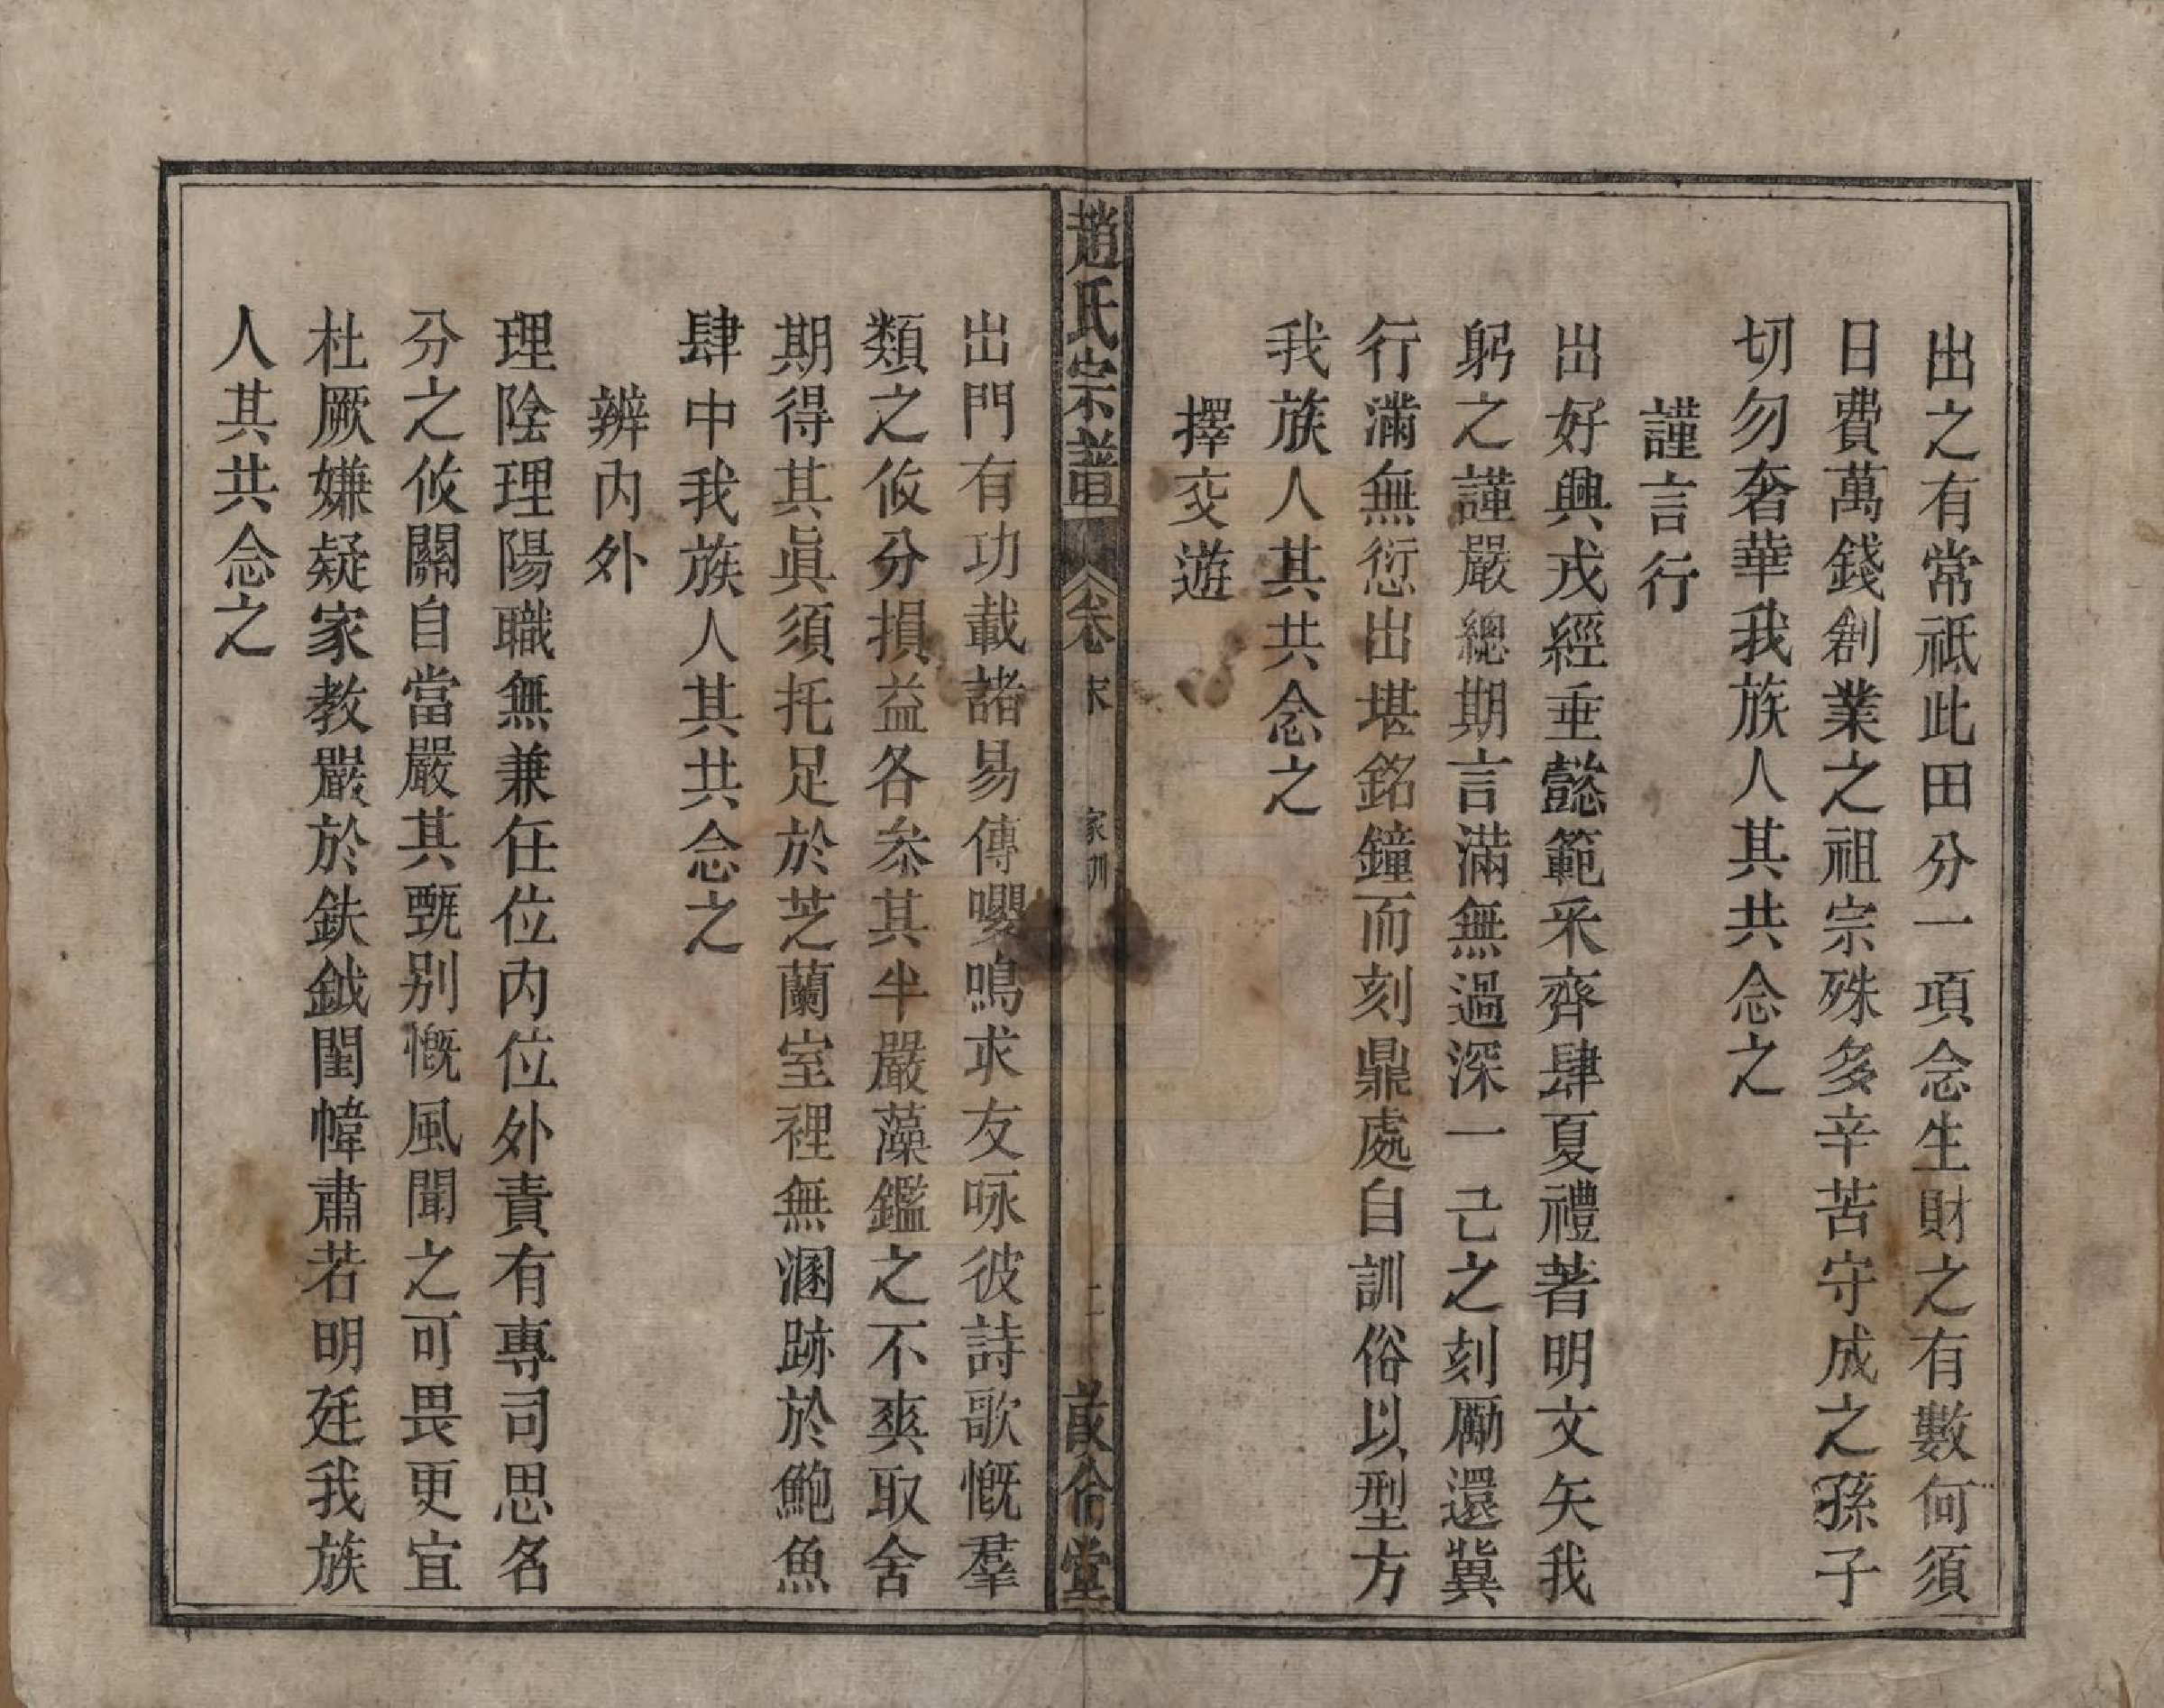 出之有常祗此田分一項念生財之有數何須
日費萬錢創業之祖宗殊多辛苦守成之孫子
切勿奢華我族人其共念之
謹言行
出好興戎經垂懿範采齊肆夏禮著明文矢我
躬之謹嚴總期言滿無過深一己之刻勵還冀
行滿無愆出堪銘鐘而刻鼎處自訓俗以型方
我族人其共念之
擇交遊
趙氏宗譜
卷末
家訓
二
敘倫堂
出門有功載諸易傳嚶鳴求友咏彼詩歌慨羣
類之攸分損益各叅其半嚴藻鑑之不爽取舍
期得其眞須托足於芝蘭室裡無溷跡於鮑魚
肆中我族人其共念之
辨內外
理陰理陽職無兼任位內位外責有專司思名
分之攸關自當嚴其甄别慨風聞之可畏更宜
杜厥嫌疑家教嚴於鈇鉞閨幃肅若明廷我族
人其共念之